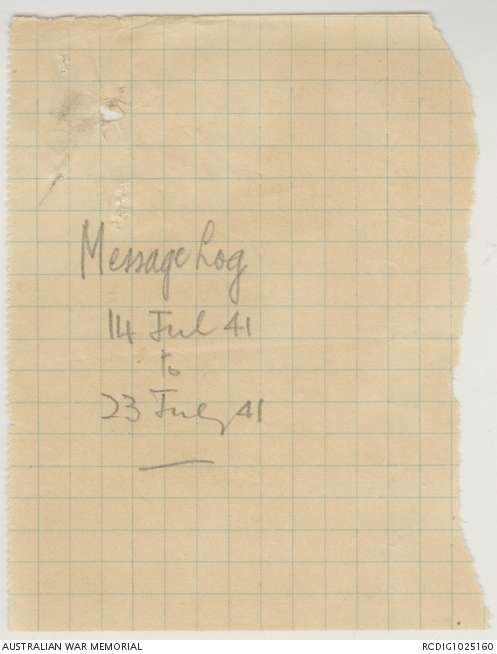 Message Log
14 Jul 41
to
23 July 41
AUSTRALIAN WAR MEMORIAL
RCDIG1025160